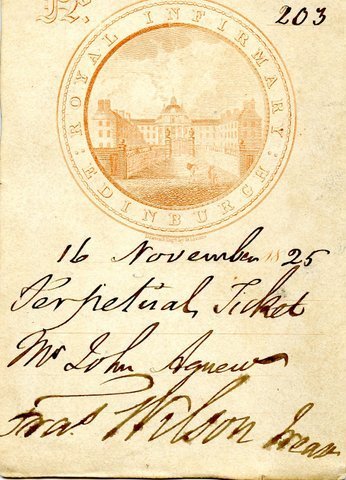 No. 203
ROYAL INFIRMARY
EDINBURGH
16 November 1825
Perpetual Ticket
Mr John Agnew
Fras. Wilson Treasr